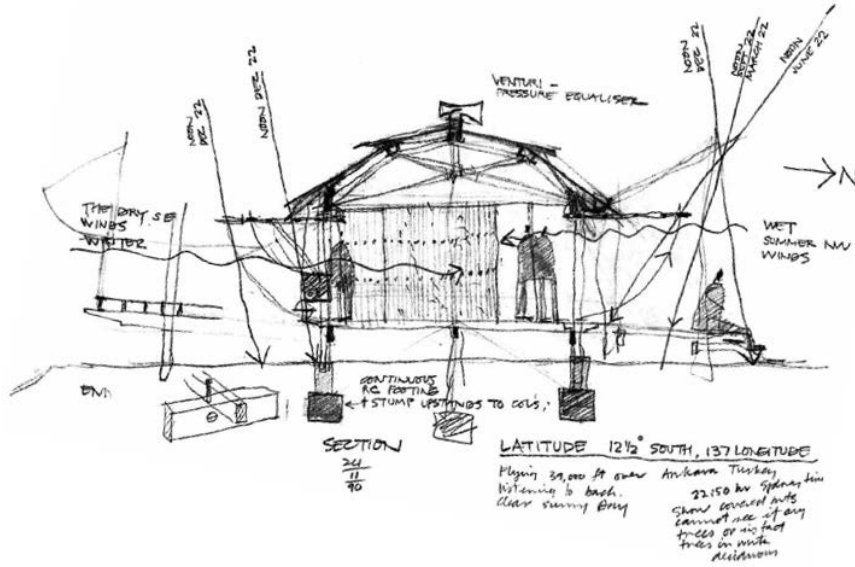 NOON
DEC 22
NOON DEC 22
VENTURI -
PRESSURE EQUALISER
NOON
DEC 22
NOON
SEPT 22
MARCH 22
NOON
JUNE 22
N
THE DRY. S.E
WINDS
WINTER
WET
SUMMER NW
WINDS
END
CONTINUOUS
RC FOOTING
+ STUMP UPSTANDS TO COL'S,
SECTION
24
11
90
LATITUDE 12½° SOUTH, 137 LONGITUDE
Flying 39,000 ft over Ankara Turkey
listening to bach.
clear sunny Day
22:50 hr Sydney time
Snow covered mts
cannot see if any
trees or in fact
trees in
deciduous